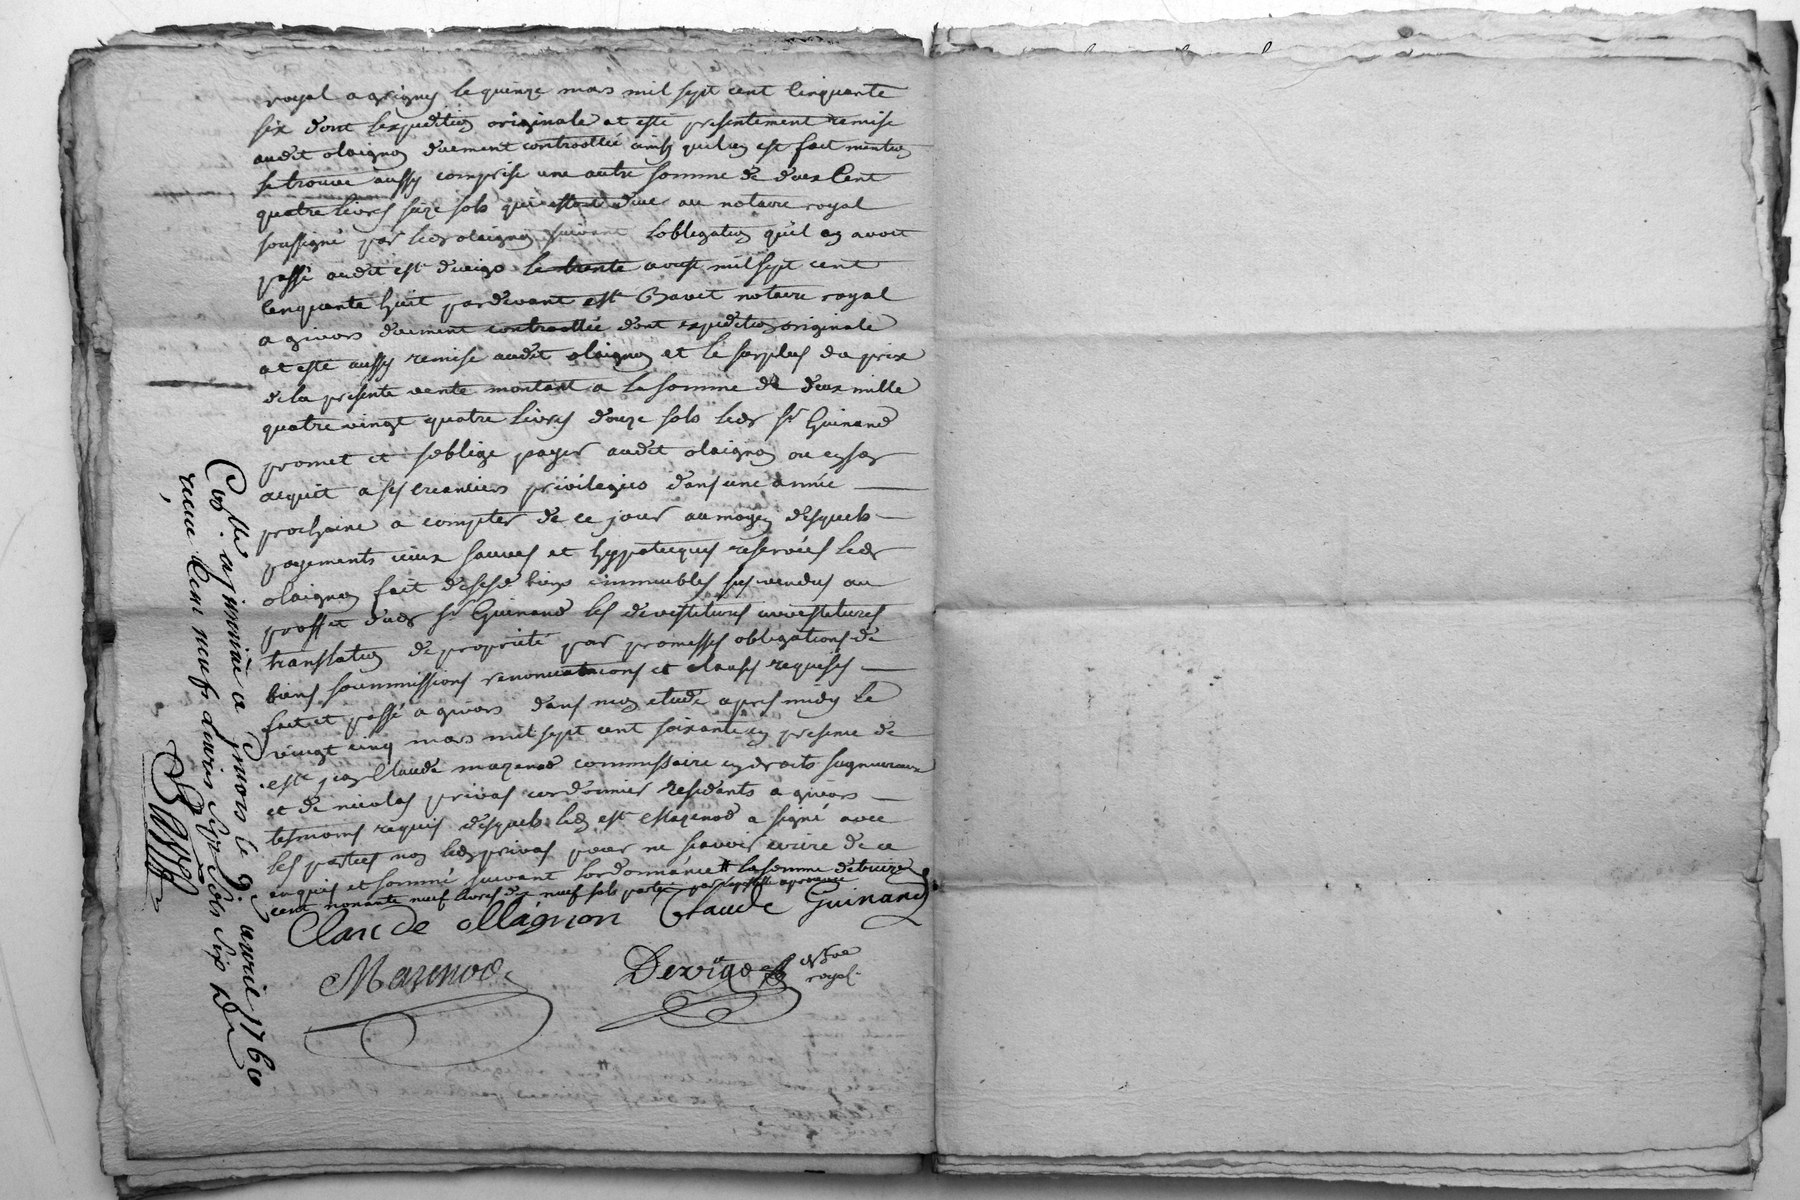 royal a grigny le quinze mars mil sept cent cinquante
six dont lexpedition originale at esté presentement remise
audit olaignon duement controollé ainsy quil en est fait mention
se trouve aussy comprise une autre somme de deux cent
quatre livres seize sols qui estoit due au notaire royal
soussigné par ledt olaignon suivant lobligation qu'il en avoit
passé audit Mre Devigo le trente aoust mil sept cent
cinquante huit pardevant Mre Bavet notaire royal
a givors duement controollée dont expedition originale
at esté aussy remise audit olaignon et le surplus du prix
de la presente vente montant a la somme de deux mille
quatre vingt quatre livres douze sols ledt Sr Guinand
promet et soblige payer audit olaignon ou en son
acquit a ses creanciers privilegiés dans une année
prochaine a compter de ce jour au moyen desquels
payements iceux sauves et hyppotecques reservées ledt
olaignon fait desesd biens immeubles susvendus au
proffit dudt Sr Guinand les devestitures investitures
translation de proprieté par promesses obligations de
biens soummissions renonciations et clauses requises
fait et passé a givors dans mon etude apres midy le
vingt cinq mars mil sept cent soixante en presence de
Mre jean Claude mazenod commissaire en droits seigneuriaux
et de nicolas privas cordonnier residants a givors
tesmoins requis desquels led Mre Mazenod a signé avec
les parties non led privas pour ne scavoir ecrire de ce
enquis et sommé suivant lordonnance # la somme de treize
cent nonante neuf livres dix neuf sols
Claude ollagnon Claude Guinand
Mazenod Devigo Nore
royal
Collé a jnsinüé a Givors le 9e avril 1760
receu Cent neuf Livres Sept sols six De